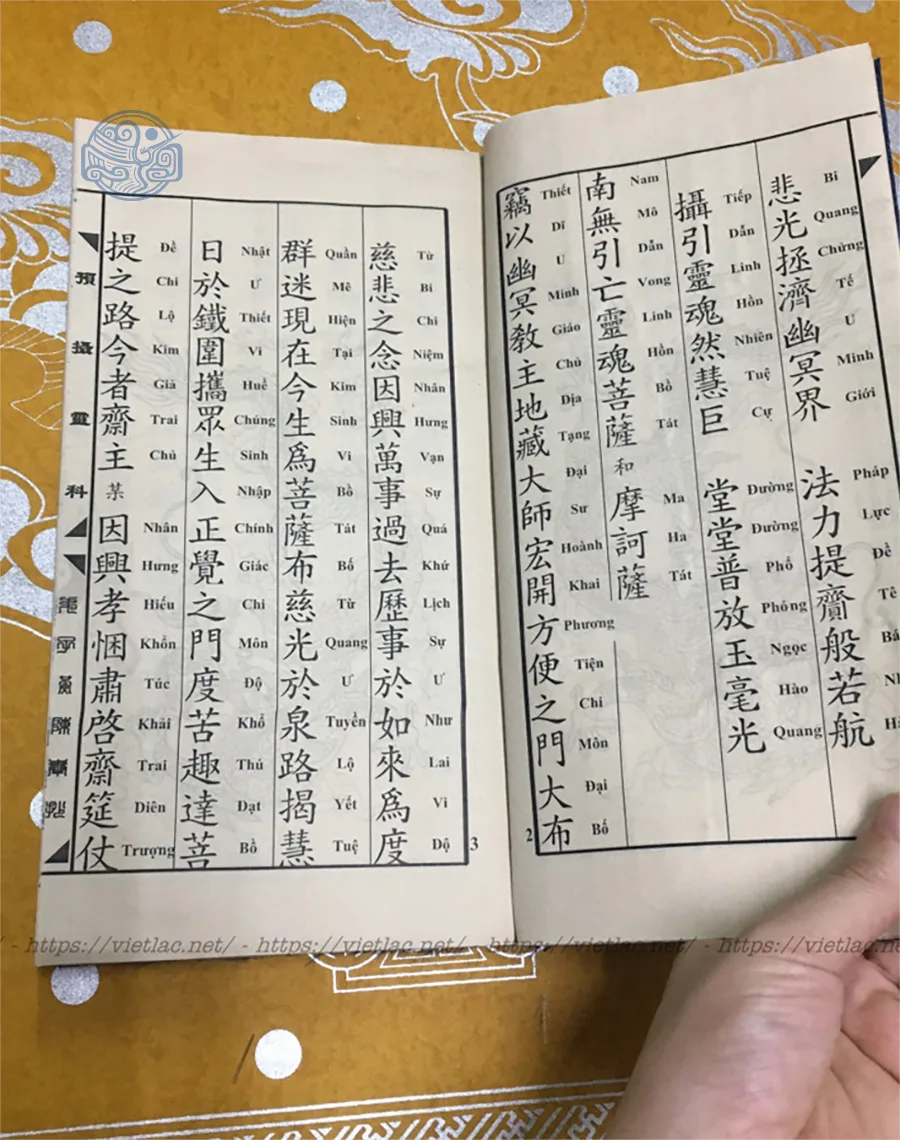 悲光拯濟幽冥界 法力提齎般若航
Bi Quang Chứng Tế U Minh Giới Pháp Lực Đề Tê
攝引靈魂然慧巨 堂堂普放玉毫光
Tiếp Dẫn Linh Hồn Nhiên Tuệ Cự Đường Đường Phổ Phóng Ngọc Hào Quang
南無引亡靈魂菩薩 和 摩訶薩
Nam Mô Dẫn Vong Linh Hồn Bồ Tát Ma Ha Tát
竊以幽冥教主地藏大師宏開方便之門大布
Thiết Dĩ U Minh Giáo Chủ Địa Tạng Đại Sư Hoành Khai Phương Tiện Chi Môn Đại Bố
2
慈悲之念因興萬事過去歷事於如來爲度
Từ Bi Chi Niệm Nhân Hưng Vạn Sự Quá Khứ Lịch Sự Ư Như Lai Vi Độ
群迷現在今生爲菩薩布慈光於泉路揭慧
Quần Mê Hiện Tại Kim Sinh Vi Bồ Tát Bố Từ Quang Ư Tuyền Lộ Yết Tuệ
日於鐵圍攜眾生入正覺之門度苦趣達菩
Nhật Ư Thiết Vi Huề Chúng Sinh Nhập Chính Giác Chi Môn Độ Khổ Thú Đạt Bồ
提之路今者齋主某因興孝悃肅啓齋筵仗
Đề Chi Lộ Kim Giả Trai Chủ Nhân Hưng Hiếu Khổn Túc Khải Trai Diên Trượng
3
預攝靈科
- https://vietlac.net/ - https://vietlac.net/ - https://vietlac.net/ - https://vietlac.net/